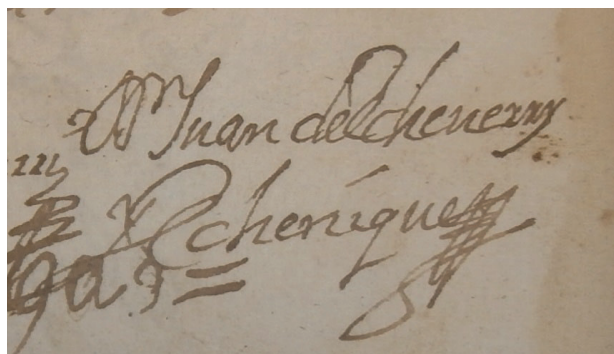 Dn Juan de Echeverry
y Echenique